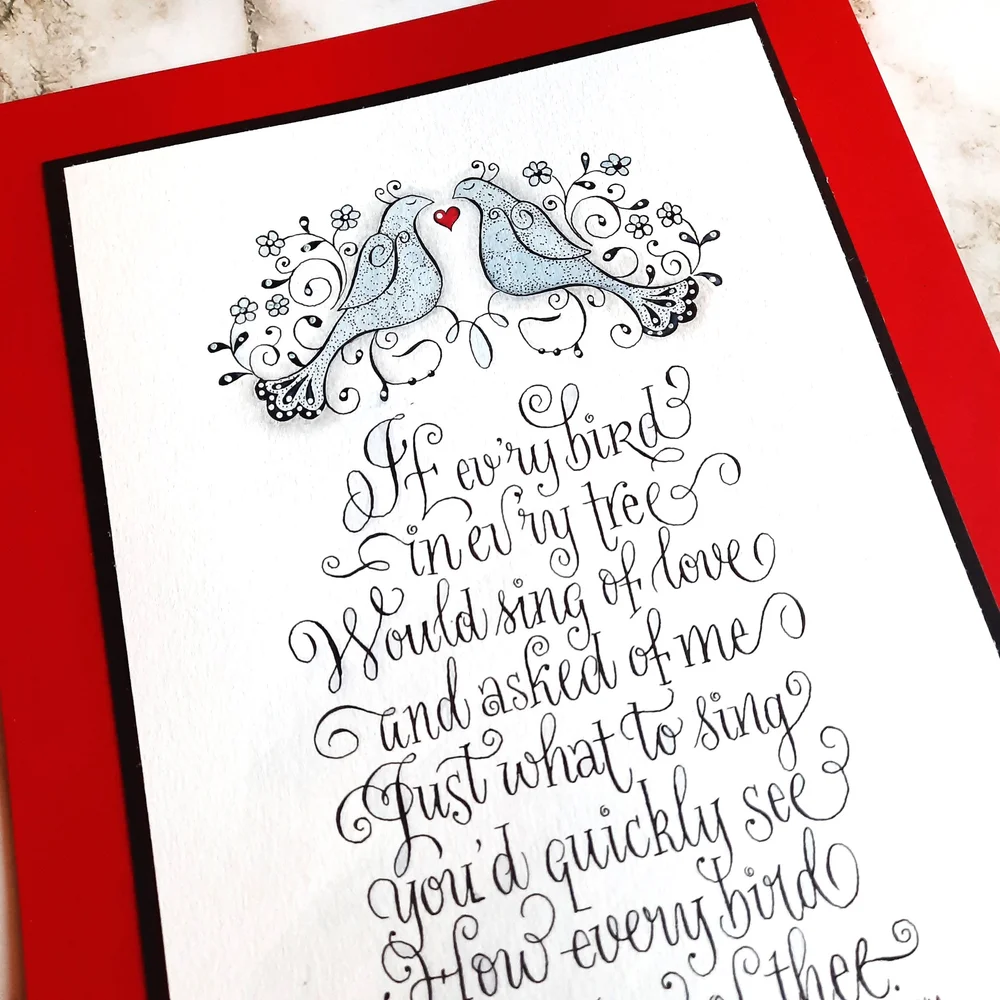 If ev'ry bird
in ev'ry tree
Would sing of love
and asked of me
Just what to sing
you'd quickly see
How every bird
of thee.